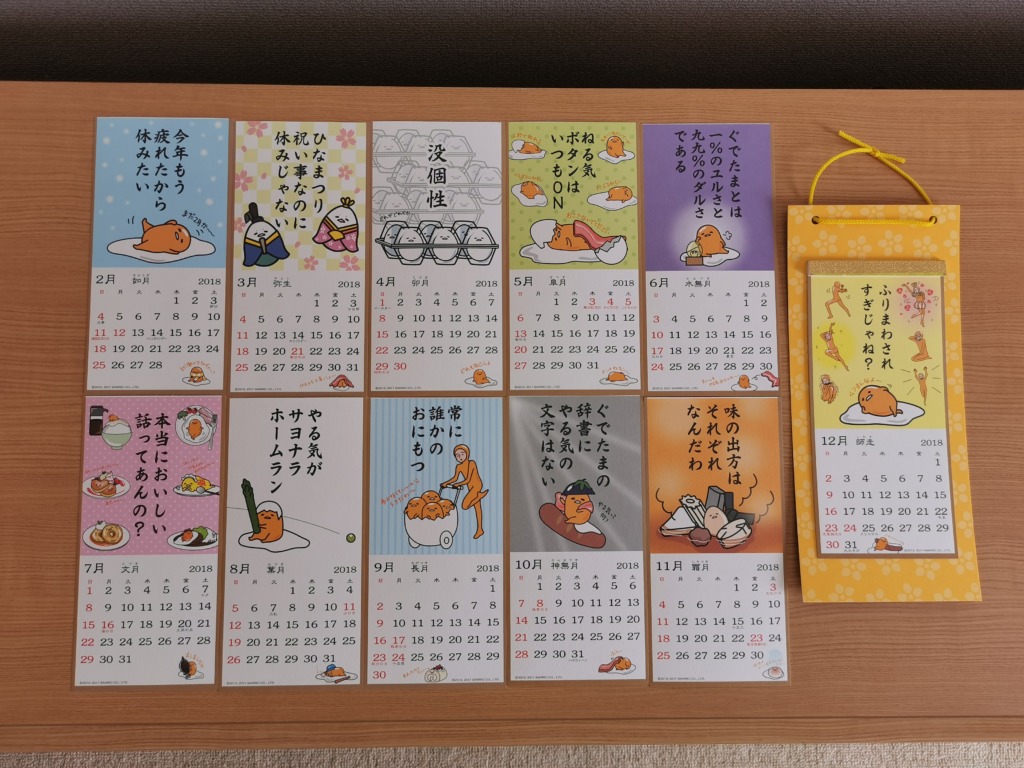 今年もう
疲れたから
休みたい
まだ2月かー
2月 如月 2018
日 月 火 水 木 金 土
1 2 3
4 5 6 7 8 9 10
11 12 13 14 15 16 17
18 19 20 21 22 23 24
25 26 27 28
ひなまつり
祝い事なのに
休みじゃない
3月 弥生 2018
日 月 火 水 木 金 土
1 2 3
4 5 6 7 8 9 10
11 12 13 14 15 16 17
18 19 20 21 22 23 24
25 26 27 28 29 30 31
没個性
4月 卯月 2018
日 月 火 水 木 金 土
1 2 3 4 5 6 7
8 9 10 11 12 13 14
15 16 17 18 19 20 21
22 23 24 25 26 27 28
29 30
ねる気
ボタンは
いつもON
5月 皐月 2018
日 月 火 水 木 金 土
1 2 3 4 5
6 7 8 9 10 11 12
13 14 15 16 17 18 19
20 21 22 23 24 25 26
27 28 29 30 31
ぐでたまとは
一%のユルさと
九九%のダルさ
である
6月 水無月 2018
日 月 火 水 木 金 土
1 2
3 4 5 6 7 8 9
10 11 12 13 14 15 16
17 18 19 20 21 22 23
24 25 26 27 28 29 30
本当においしい
話ってあんの?
7月 文月 2018
日 月 火 水 木 金 土
1 2 3 4 5 6 7
8 9 10 11 12 13 14
15 16 17 18 19 20 21
22 23 24 25 26 27 28
29 30 31
やる気が
サヨナラ
ホームラン
8月 葉月 2018
日 月 火 水 木 金 土
1 2 3 4
5 6 7 8 9 10 11
12 13 14 15 16 17 18
19 20 21 22 23 24 25
26 27 28 29 30 31
常に
誰かの
おにもつ
9月 長月 2018
日 月 火 水 木 金 土
1
2 3 4 5 6 7 8
9 10 11 12 13 14 15
16 17 18 19 20 21 22
23 24 25 26 27 28 29
30
ぐでたまの
辞書に
やる気の
文字はない
10月 神無月 2018
日 月 火 水 木 金 土
1 2 3 4 5 6
7 8 9 10 11 12 13
14 15 16 17 18 19 20
21 22 23 24 25 26 27
28 29 30 31
味の出方は
それぞれ
なんだわ
11月 霜月 2018
日 月 火 水 木 金 土
1 2 3
4 5 6 7 8 9 10
11 12 13 14 15 16 17
18 19 20 21 22 23 24
25 26 27 28 29 30
ふりまわされ
すぎじゃね?
12月 師走 2018
日 月 火 水 木 金 土
1
2 3 4 5 6 7 8
9 10 11 12 13 14 15
16 17 18 19 20 21 22
23 24 25 26 27 28 29
30 31